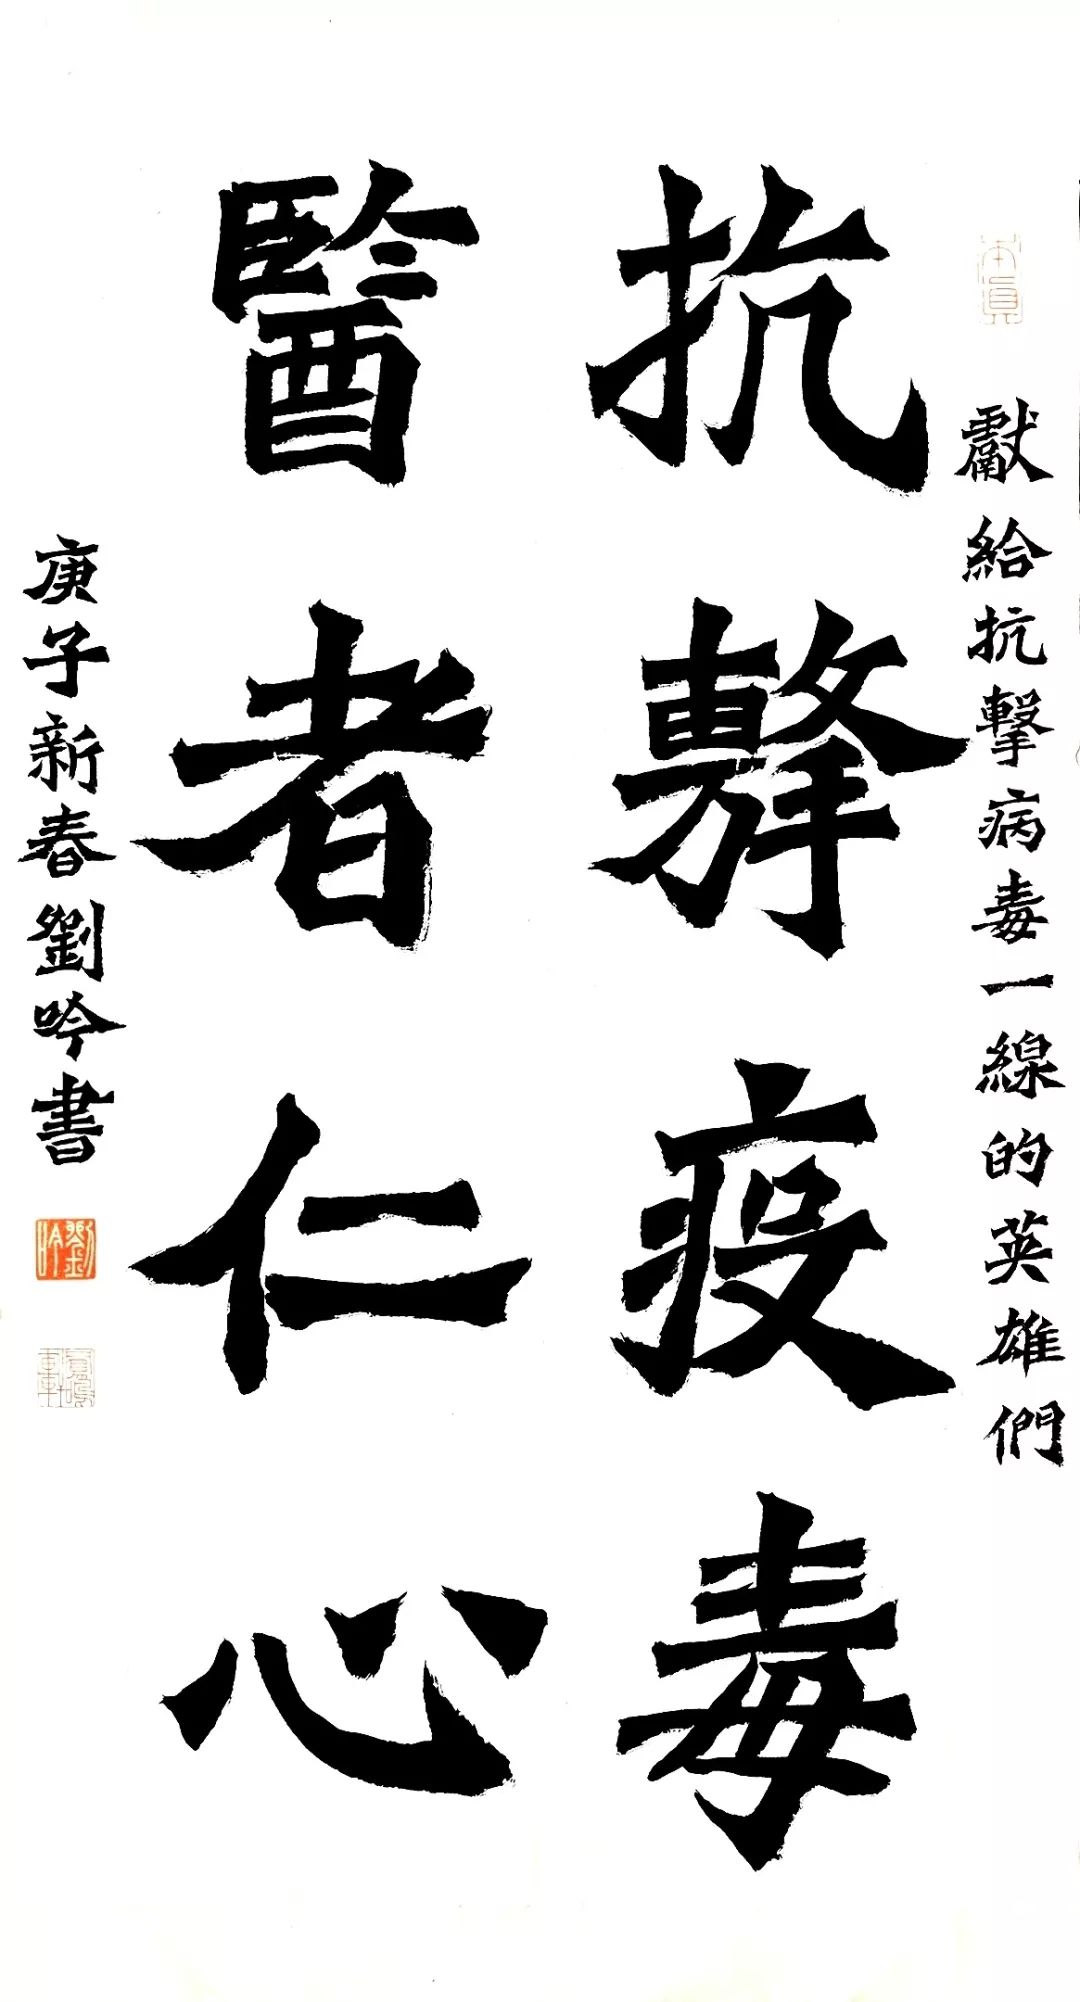 獻給抗擊病毒一線的英雄們
抗擊疫毒
醫者仁心
庚子新春劉吟書
劉吟